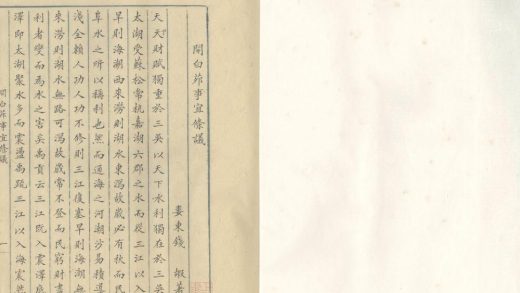 開白茆事宜條議
婁東錢 嘏著
夫天下財賦獨重於三吳以天下水利獨在於三吳
太湖受蘇松常杭嘉湖六郡之水而從三江以入
旱則海潮西來澇則湖水東瀉故歲必有秋而民
阜水之所以稱利也然而通海之河潮沙易積導
淺全賴人功人功不修則三江復塞旱則海潮無
來澇則湖水無路可瀉故歲常不登而民窮財盡
利者變而為水之害矣禹貢云三江既入震澤底
澤即太湖聚水多而震盪禹疏三江以入海震
開白茆事宜條議 一